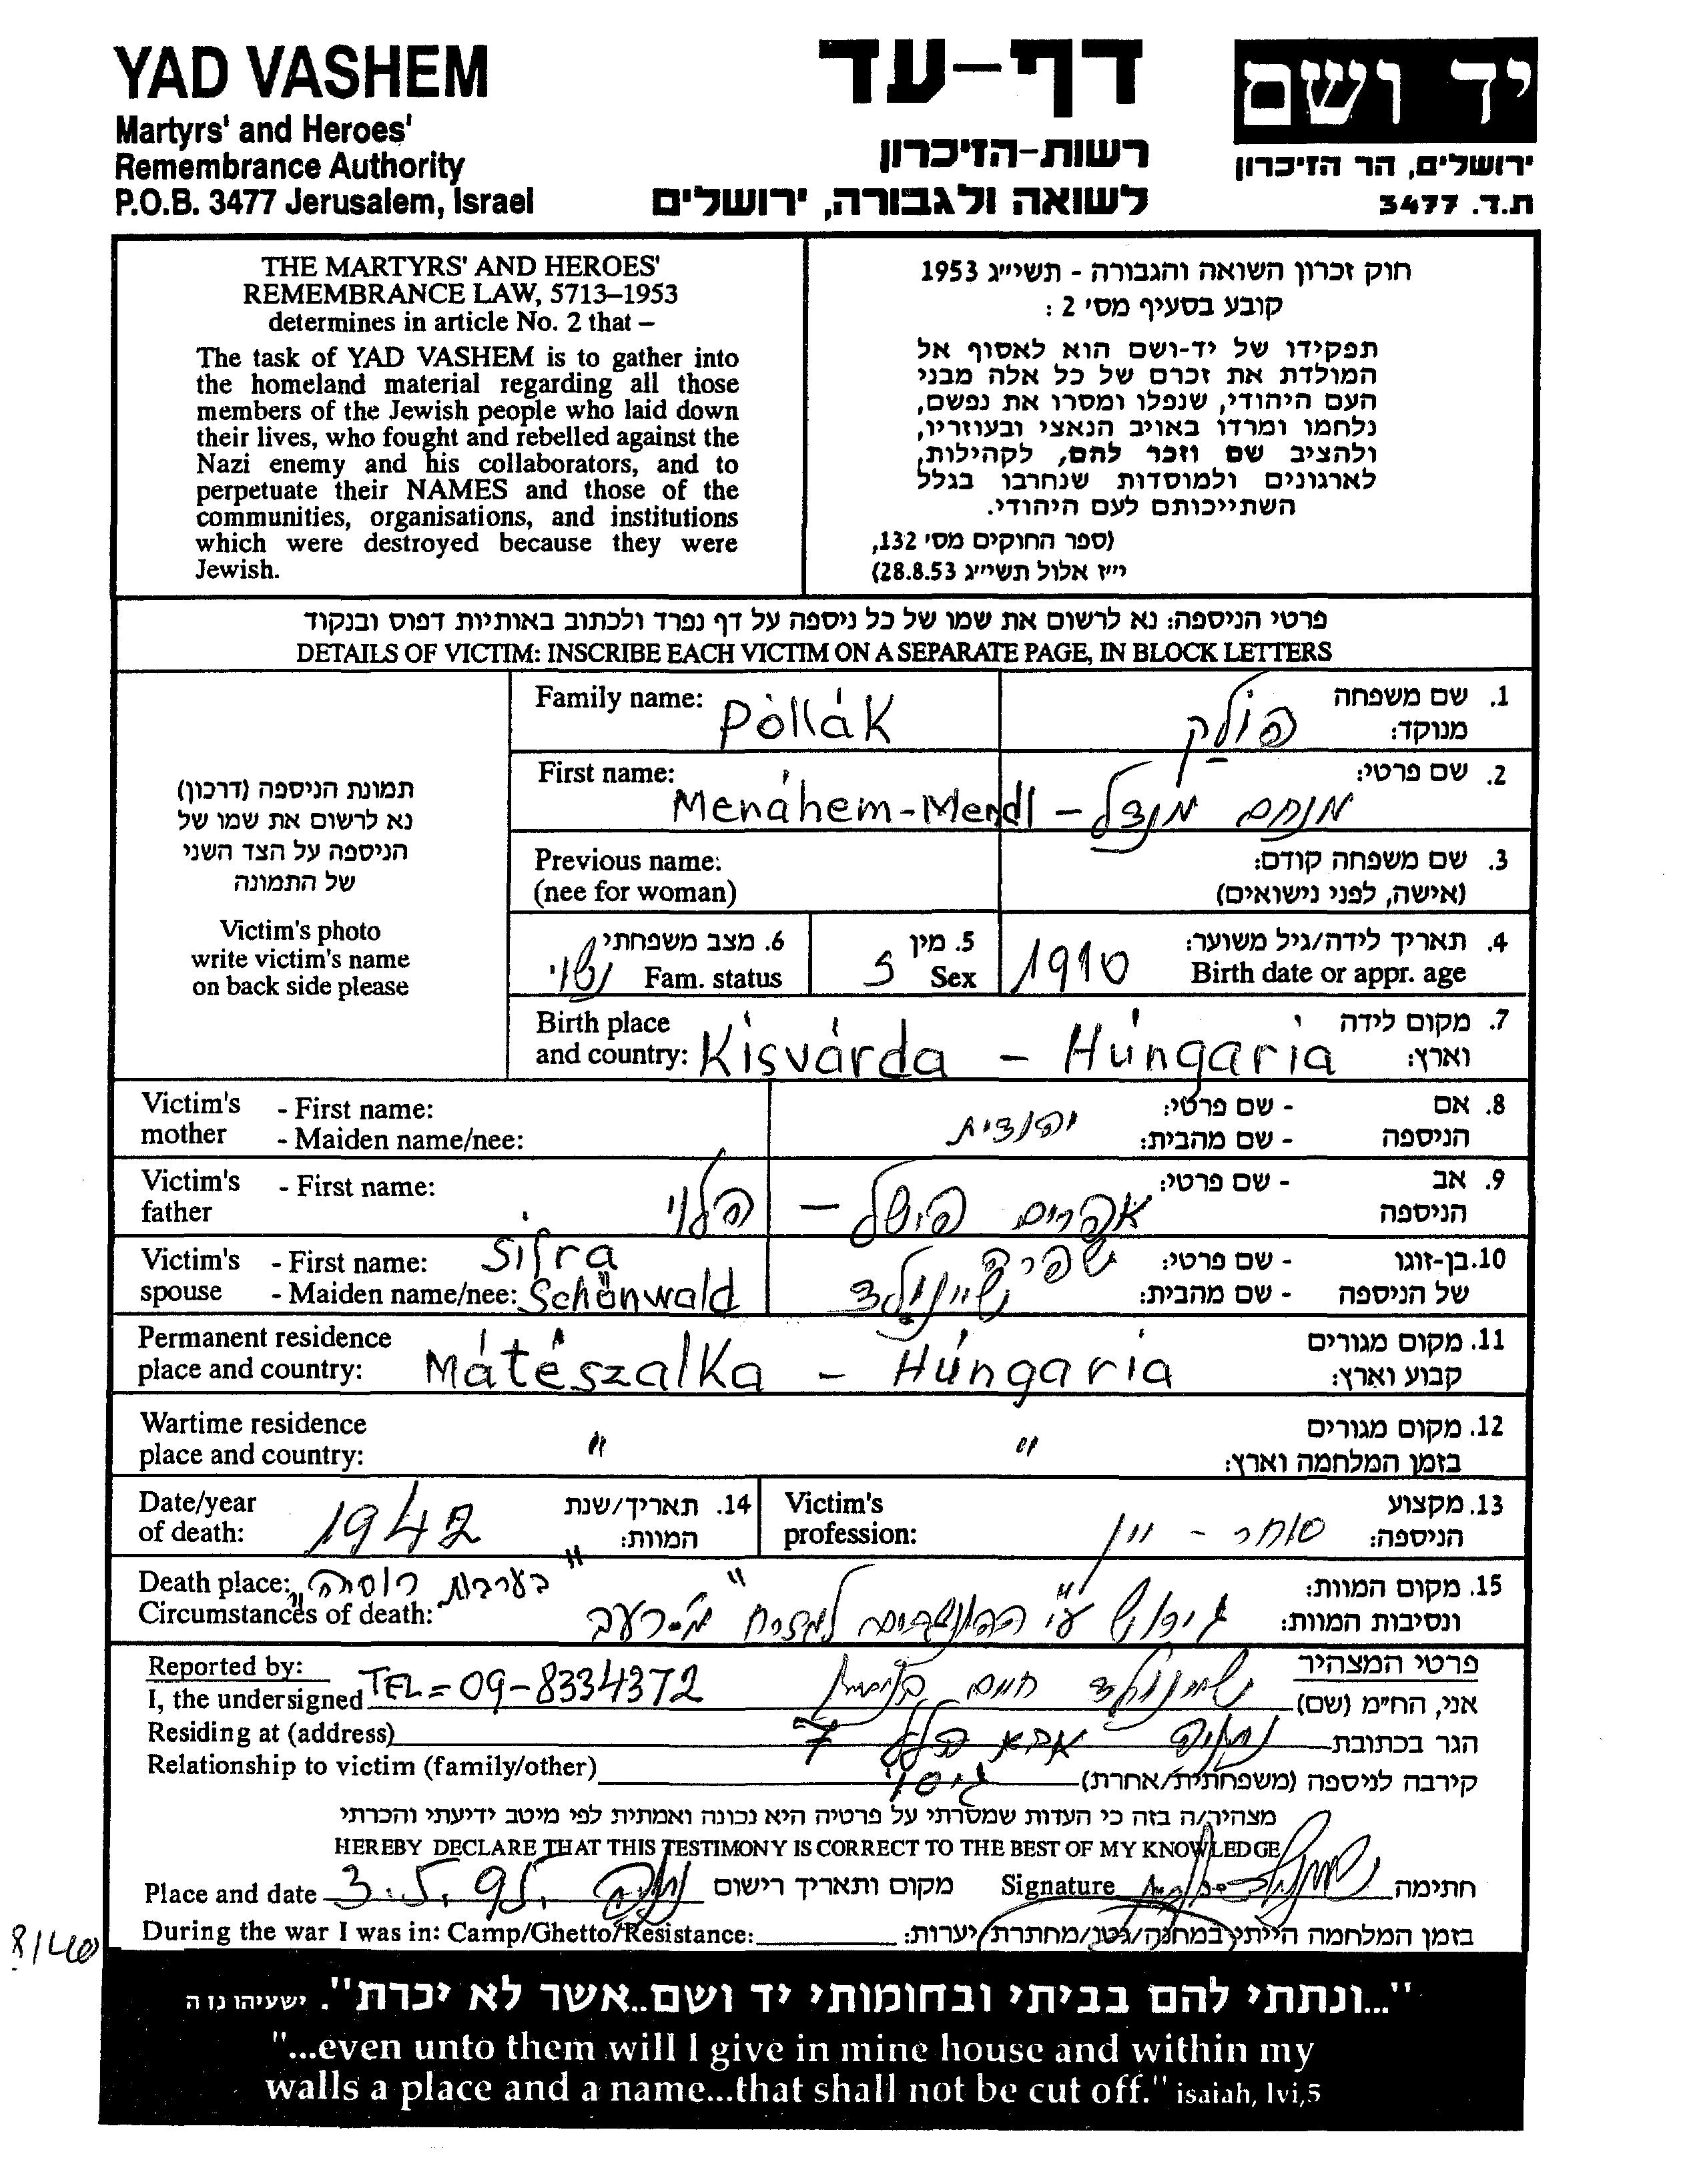 YAD VASHEM
Martyrs' and Heroes'
Remembrance Authority
P.O.B. 3477 Jerusalem, Israel
דף-עד
רשות-הזיכרון
לשואה ולגבורה, ירושלים
יד ושם
ירושלים, הר הזיכרון
ת.ד. 3477
THE MARTYRS' AND HEROES'
REMEMBRANCE LAW, 5713–1953
determines in article No. 2 that –
The task of YAD VASHEM is to gather into
the homeland material regarding all those
members of the Jewish people who laid down
their lives, who fought and rebelled against the
Nazi enemy and his collaborators, and to
perpetuate their NAMES and those of the
communities, organisations, and institutions
which were destroyed because they were
Jewish.
חוק זכרון השואה והגבורה - תשי״ג 1953
קובע בסעיף מס׳ 2 :
תפקידו של יד-ושם הוא לאסוף אל
המולדת את זכרם של כל אלה מבני
העם היהודי, שנפלו ומסרו את נפשם,
נלחמו ומרדו באויב הנאצי ובעוזריו,
ולהציב שם וזכר להם, לקהילות,
לארגונים ולמוסדות שנחרבו בגלל
השתייכותם לעם היהודי.
(ספר החוקים מס׳ 132,
י״ז אלול תשי״ג 28.8.53)
פרטי הניספה: נא לרשום את שמו של כל ניספה על דף נפרד ולכתוב באותיות דפוס ובנקוד
DETAILS OF VICTIM: INSCRIBE EACH VICTIM ON A SEPARATE PAGE, IN BLOCK LETTERS
תמונת הניספה (דרכון)
נא לרשום את שמו של
הניספה על הצד השני
של התמונה
Victim's photo
write victim's name
on back side please
Family name: Pollák פולק 1. שם משפחה
מנוקד:
First name: Menáhem-Mendl - מנחם מנדל 2. שם פרטי:
Previous name: 3. שם משפחה קודם:
(nee for woman) (אישה, לפני נישואים)
6. מצב משפחתי 5. מין 4. תאריך לידה/גיל משוער:
נשוי Fam. status ז Sex 1910 Birth date or appr. age
Birth place 7. מקום לידה
and country: Kisvárda - Húngaria וארץ:
Victim's - First name: - שם פרטי: 8. אם
mother - Maiden name/nee: יהודית - שם מהבית: הניספה
Victim's - First name: - שם פרטי: 9. אב
father אפרים פישל - הלוי הניספה
Victim's - First name: Sifra שפרה - שם פרטי: 10. בן-זוגו
spouse - Maiden name/nee: Schönwald שיינולד - שם מהבית: של הניספה
Permanent residence 11. מקום מגורים
place and country: Mátészalka - Húngaria קבוע וארץ:
Wartime residence 12. מקום מגורים
place and country: " " בזמן המלחמה וארץ:
Date/year 14. תאריך/שנת Victim's 13. מקצוע
of death: 1942 המוות: profession: סוחר - יין הניספה:
Death place: "בערבות רוסיה" 15. מקום המוות:
Circumstances of death: גירוש ע״י ההונגרים למזרח מ-רעב ונסיבות המוות:
Reported by: פרטי המצהיר
I, the undersigned TEL = 09-8334372 שיינולד חיים אני, הח״מ (שם)
Residing at (address) נתניה אבא הלל 7 הגר בכתובת
Relationship to victim (family/other) גיסו קירבה לניספה (משפחתית/אחרת)
מצהיר/ה בזה כי העדות שמסרתי על פרטיה היא נכונה ואמתית לפי מיטב ידיעתי והכרתי
HEREBY DECLARE THAT THIS TESTIMONY IS CORRECT TO THE BEST OF MY KNOWLEDGE
Place and date 3.5.95. נתניה מקום ותאריך רישום Signature חתימה
During the war I was in: Camp/Ghetto/Resistance: בזמן המלחמה הייתי במחנה/גטו/מחתרת/יערות:
"...ונתתי להם בביתי ובחומותי יד ושם..אשר לא יכרת". ישעיהו נו ה
"...even unto them will I give in mine house and within my
walls a place and a name...that shall not be cut off." isaiah, lvi,5